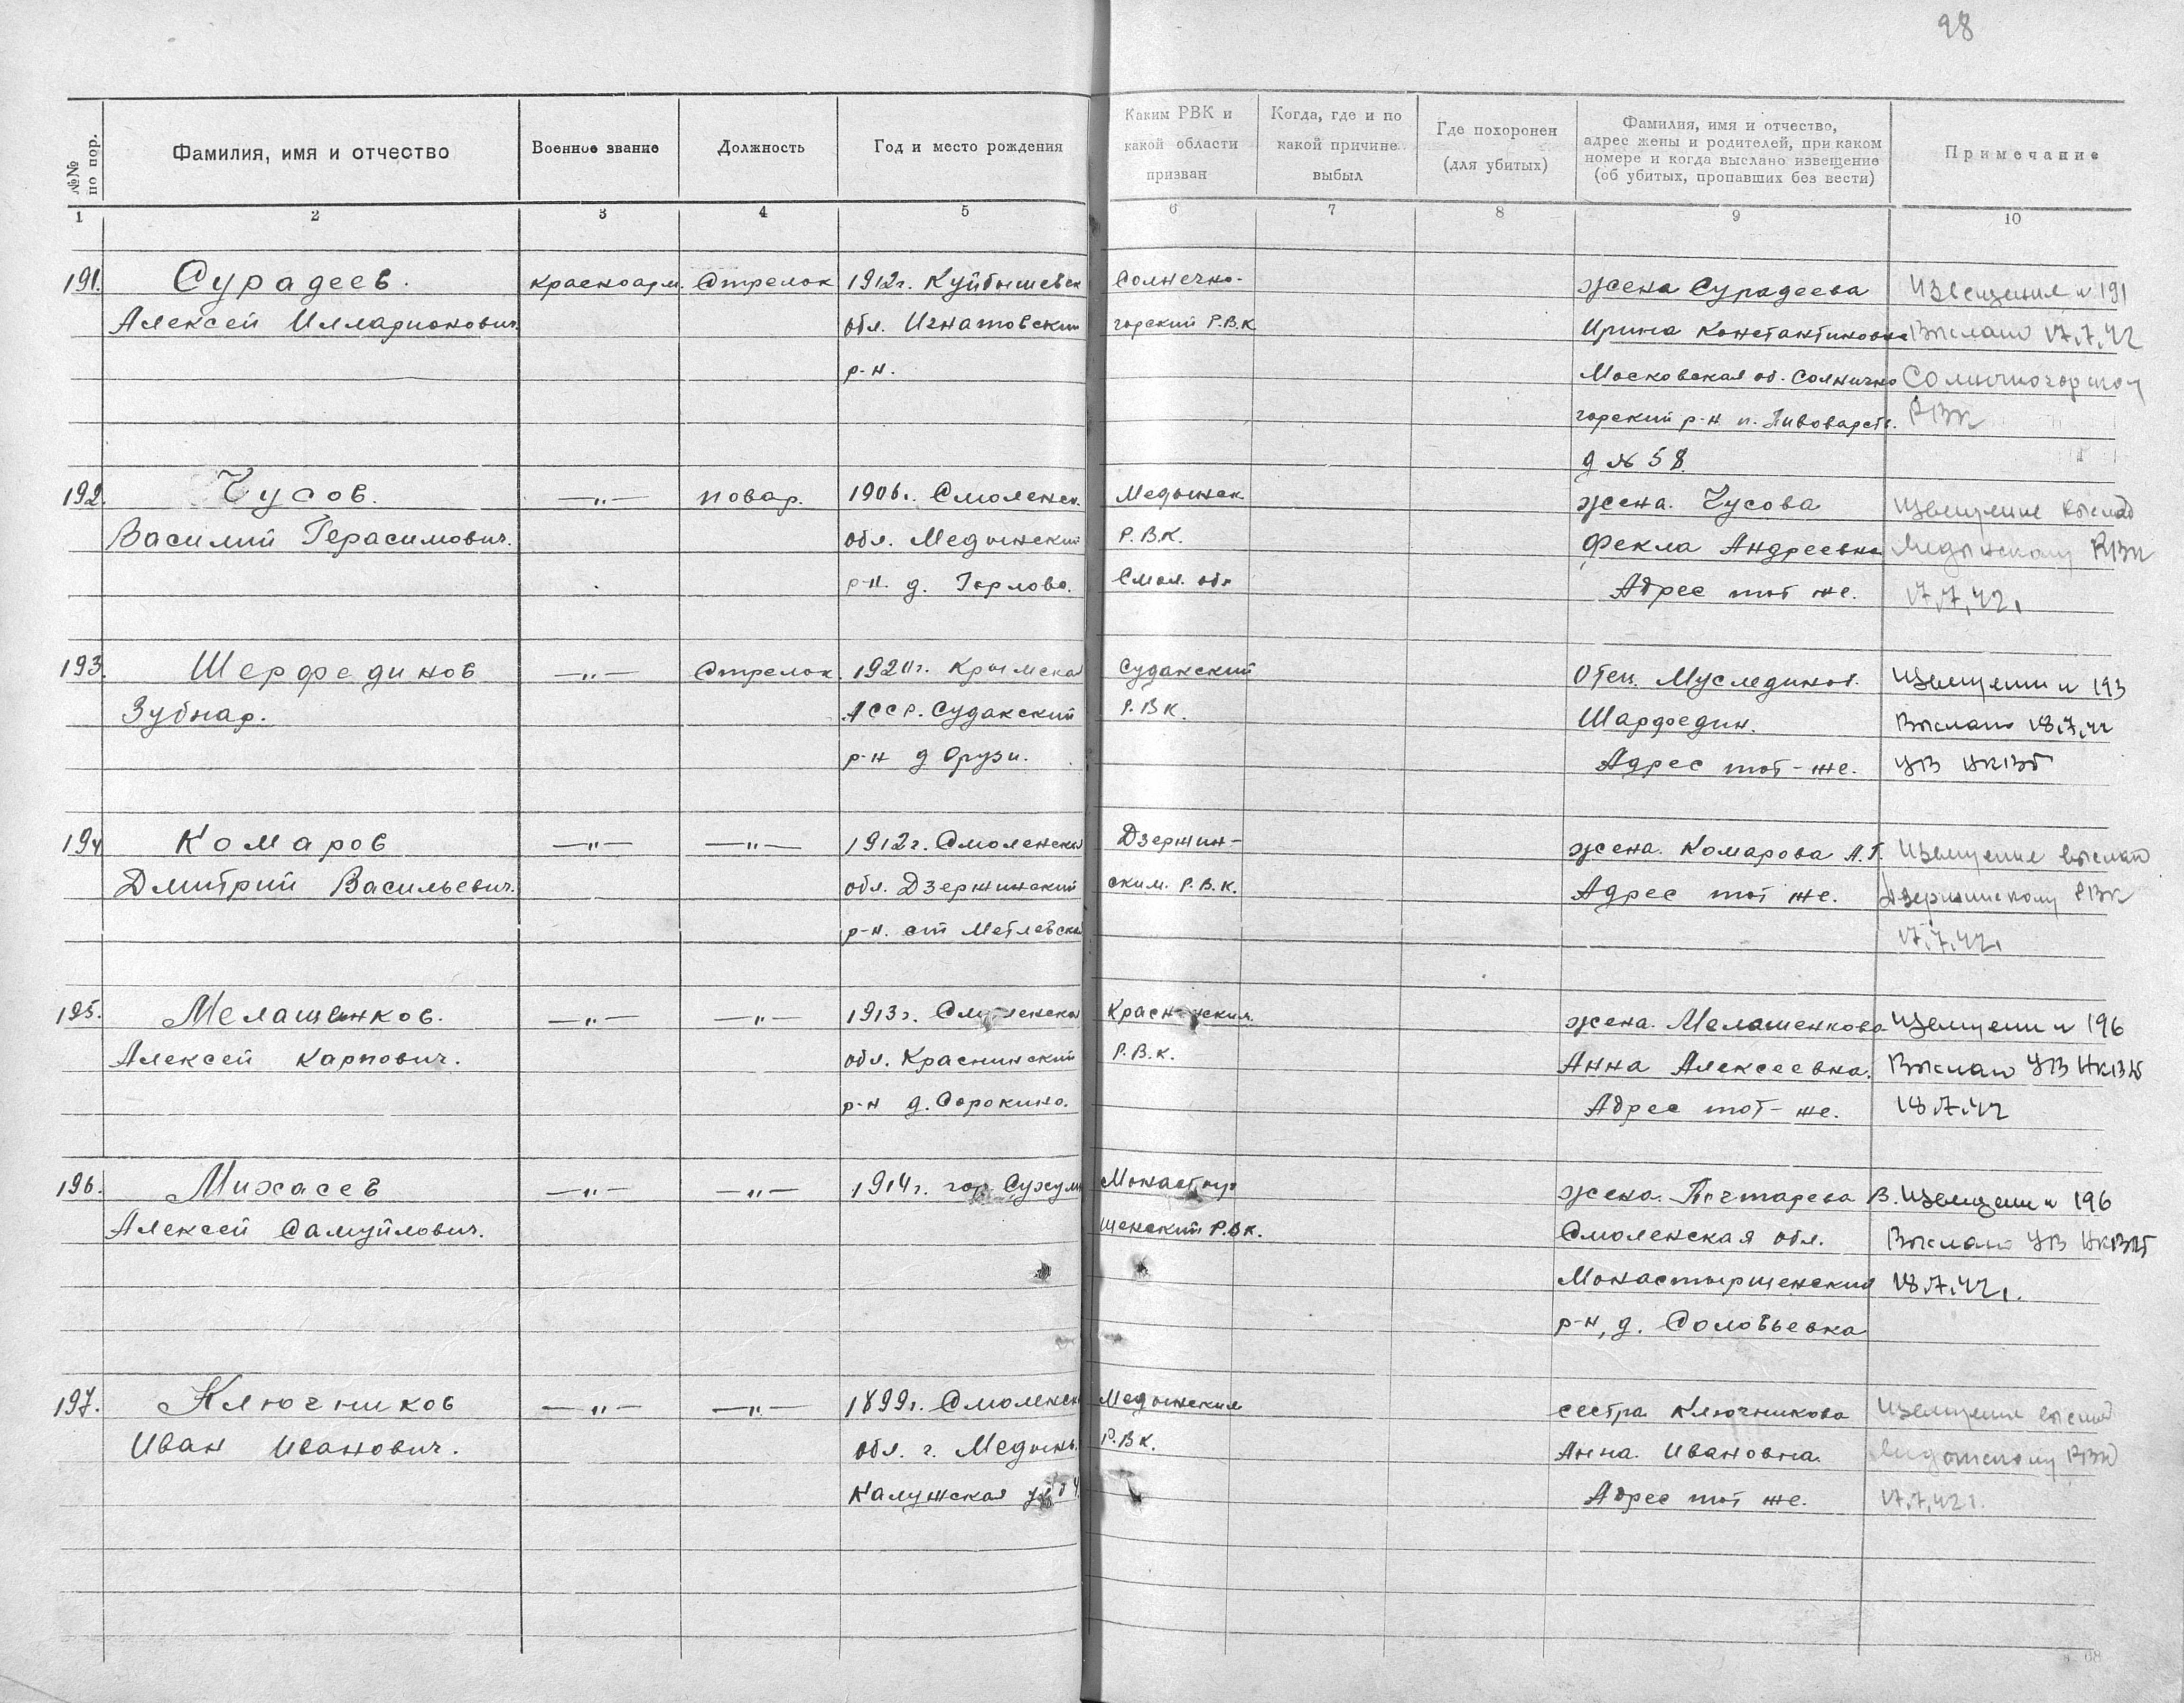 98
№№ по пор.
Фамилия, имя и отчество
Военное звание
Должность
Год и место рождения
Каким РВК и какой области призван
Когда, где и по какой причине выбыл
Где похоронен (для убитых)
Фамилия, имя и отчество, адрес жены и родителей, при каком номере и когда выслано извещение (об убитых, пропавших без вести)
Примечание
1 2 3 4 5 6 7 8 9 10
191. Сурадеев. красноарм. Стрелок 1912г. Куйбышевск Солнечно- жена Сурадеева Извещения н 191
Алексей Илларионович. обл. Игнатовский горский Р.В.К Ирина Константиновна Выслано 17.7.42
р-н. Московская об. Солнечно Солнечногорском
горский р-н п. Пивоварств. РВК
д № 58.
192. Чусов. —"— повар. 1906г. Смоленск. Медынск. жена. Чусова Извещение выслано
Василий Герасимович. обл. Медынский Р.В.К. Фекла Андреевна Медынскому РВК
р-н. д. Горлово. Смол. обл Адрес тот же. 17.7.42.
193. Шерфединов —"— Стрелок. 1920г. Крымская Судакский Отец. Муслединов. Извещении н 193
Зубнар. АССР. Судакский Р.ВК. Шарфедин. Выслано 18.7.42
р-н д Орузи. Адрес тот-же. УВ НКВД
194 Комаров —"— —"— 1912г. Смоленская Дзержин- жена. Комарова А.Г. Извещение выслано
Дмитрий Васильевич. обл. Дзержинский ским. Р.В.К. Адрес тот же. Дзержинскому РВК
р-н. ст Метлевская 17.7.42.
195. Мелашенков. —"— —"— 1913г. Смоленская Краснинский. жена. Мелашенкова Извещении н 196
Алексей Карпович. обл. Краснинский Р.В.К. Анна Алексеевна. Выслано УВ НКВД
р-н д. Сорокино. Адрес тот-же. 18.7.42
196. Михасев —"— —"— 1914г. гор Сухуми Монастыр жена. Почтарева В. Извещении н 196
Алексей Самуйлович. щенский Р.В.К. Смоленская обл. Выслано УВ НКВД
Монастырщенский 18.7.42.
р-н, д. Соловьевка
197. Ключников —"— —"— 1899г. Смоленск Медынский сестра Ключникова Извещение выслано
Иван Иванович. обл. г. Медынь. Р.ВК. Анна. Ивановна. Медынскому РВК
Калужская Адрес тот же. 17.7.42г.
68